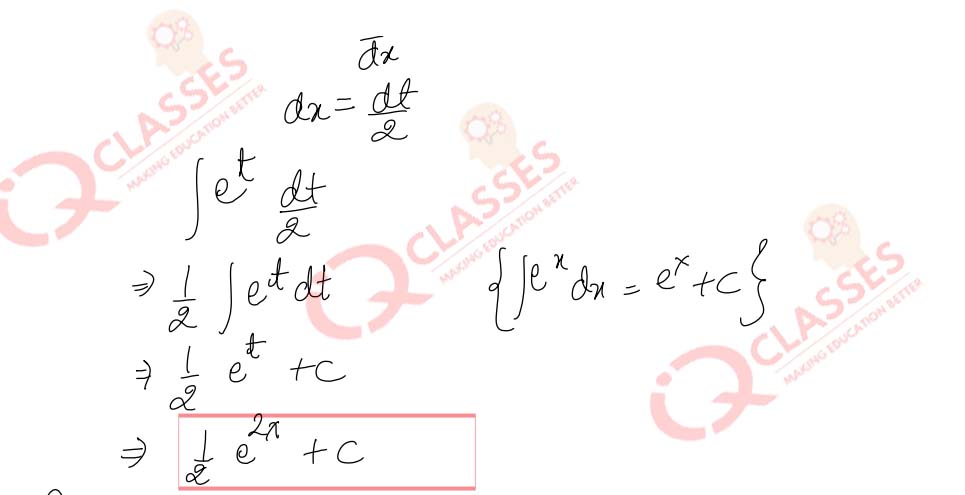 dx
dx = dt/2
∫ e^t dt/2
⇒ 1/2 ∫ e^t dt { ∫ e^x dx = e^x + c }
⇒ 1/2 e^t + c
⇒ 1/2 e^{2x} + c
iQ CLASSES
MAKING EDUCATION BETTER
iQ CLASSES
MAKING EDUCATION BETTER
iQ CLASSES
MAKING EDUCATION BETTER